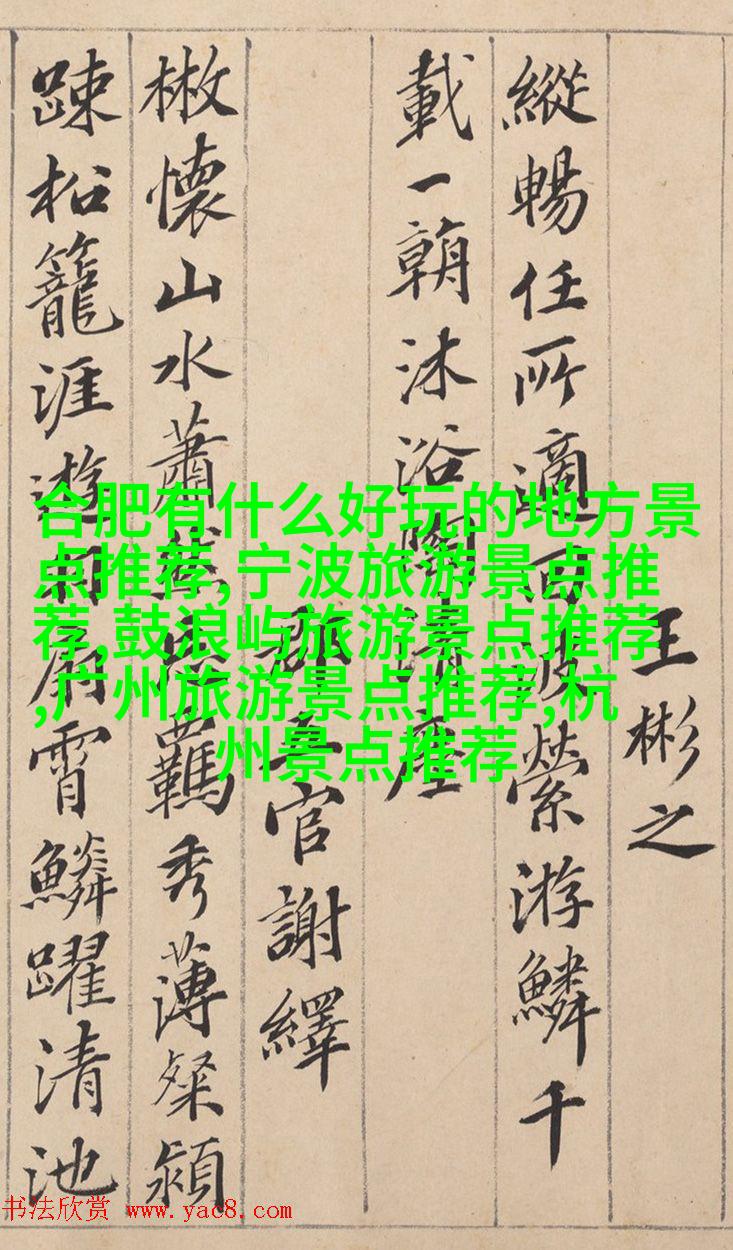 王彬之
縱暢任所適回波縈游鱗千
載一朝沐浴陶清
郡五官謝繹
散懷山水蕭然忘羈秀薄粲穎
踈松籠涯遊羽扇霄鱗躍清池
合肥有什么好玩的地方景
点推荐,宁波旅游景点推
荐,鼓浪屿旅游景点推荐
,广州旅游景点推荐,杭
州景点推荐
书法欣赏 www.yac8.com